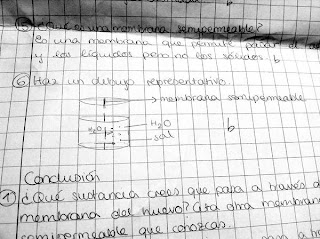 ⑤ ¿Qué es una membrana semipermeable?
Es una membrana que permite pasar el
y los líquidos pero no los sólidos b
⑥ Haz un dibujo representativo.
membrana semipermeable
H₂O
H₂O
sal
b
Conclusión
① ¿Qué sustancia crees que pasa a través d
membrana del huevo? Cita otra membran
semipermeable que conozcas.